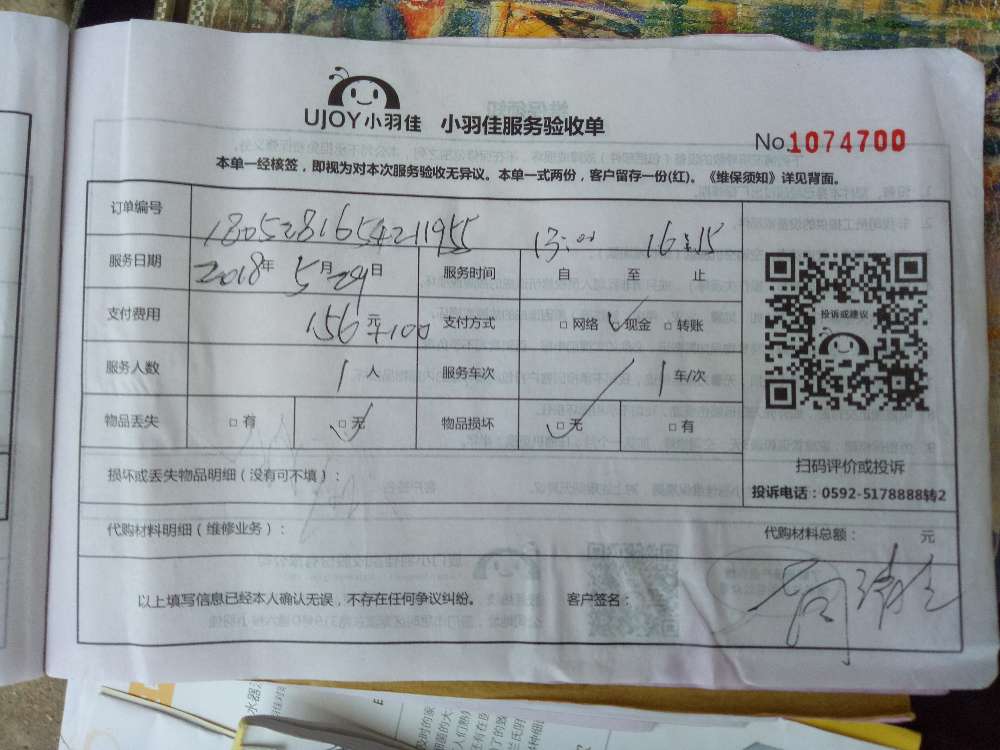 UJOY小羽佳 小羽佳服务验收单
No.1074700
本单一经核签，即视为对本次服务验收无异议。本单一式两份，客户留存一份(红)。《维保须知》详见背面。
订单编号 1805281654211955
服务日期 2018年5月29日 服务时间 13:00 自 至 16:15 止
支付费用 156元+100 支付方式 □网络 ☑现金 □转账
投诉或建议
服务人数 1人 服务车次 1车/次
物品丢失 □有 ☑无 物品损坏 ☑无 □有
扫码评价或投诉
损坏或丢失物品明细（没有可不填）：
投诉电话：0592-5178888转2
代购材料明细（维修业务）： 代购材料总额： 元
以上填写信息已经本人确认无误，不存在任何争议纠纷。 客户签名：